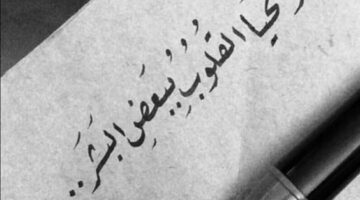 تحيا القُلُوبِ بُبعَضِ البَشَر..